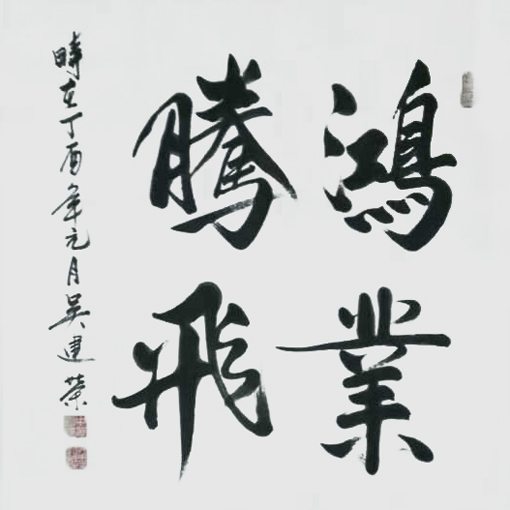 鴻業
騰飛
時在丁酉年元月吳建榮